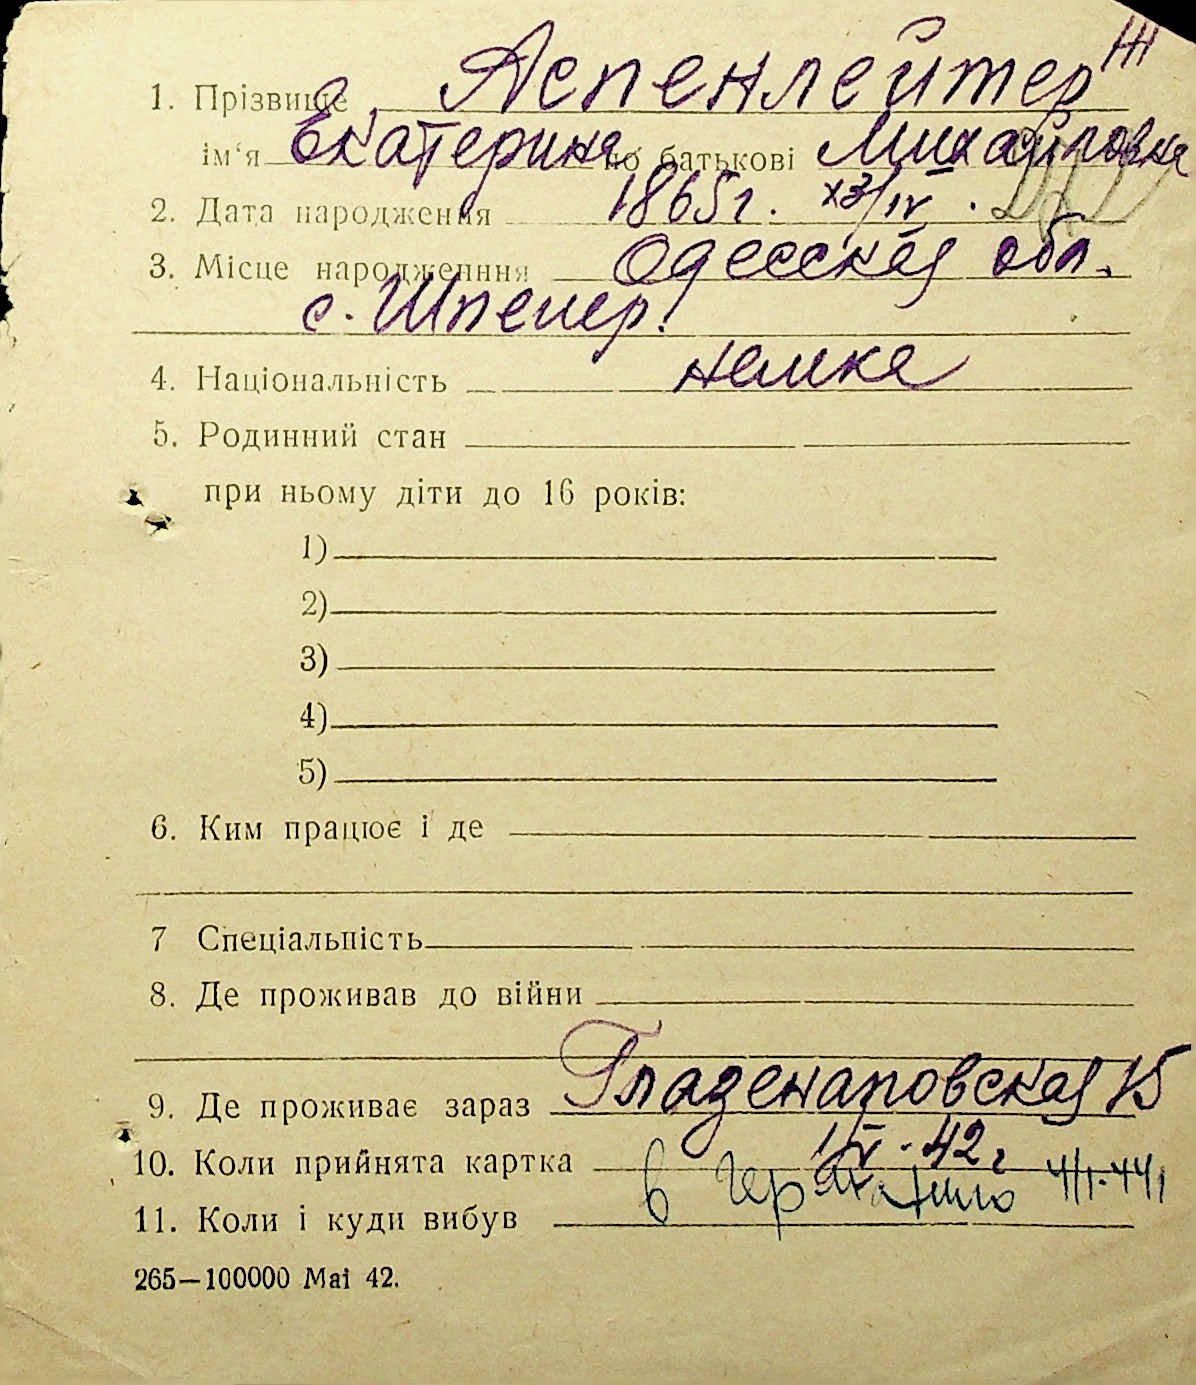 1. Прізвище Аспенлейтер Ж
ім‘я Екатерина по батькові Михайловна
2. Дата народження 1865 г. /IV.
3. Місце народженння Одесская обл.
с. Шпеер.
4. Національність немка
5. Родинний стан
при ньому діти до 16 років:
1)
2)
3)
4)
5)
6. Ким працює і де
7 Спеціальність
8. Де проживав до війни
9. Де проживає зараз 15
10. Коли прийнята картка 1/V. 42 г
11. Коли і куди вибув в Германию 4/I.44
265—100000 Mai 42.